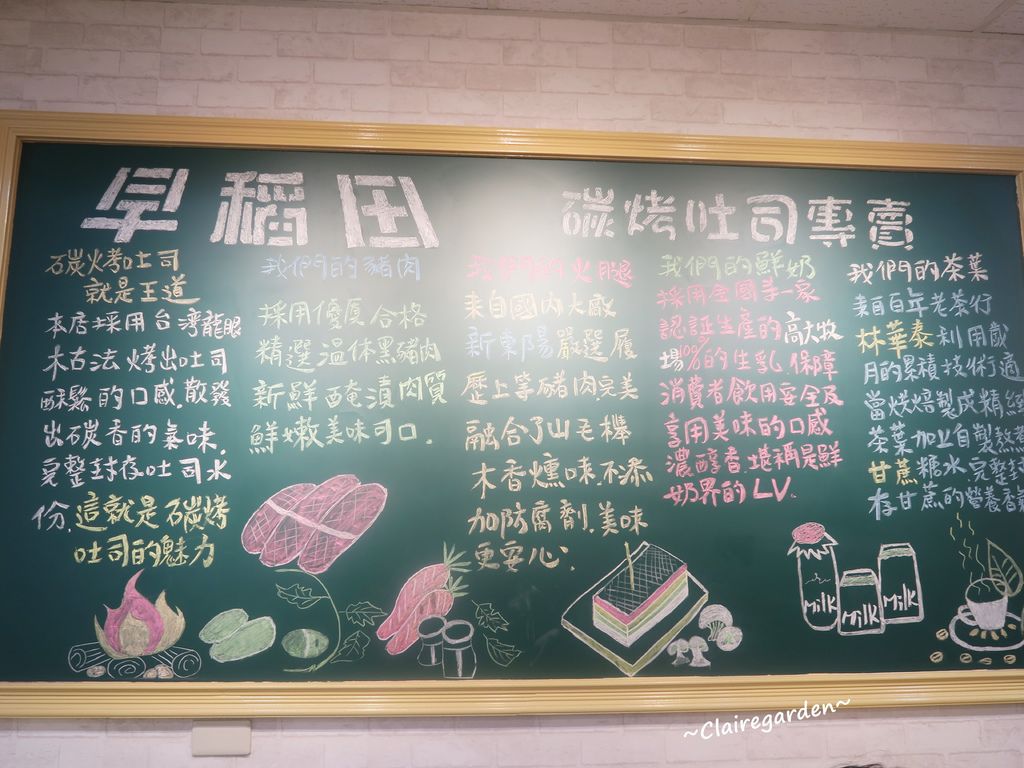 早稻田
碳烤吐司專賣
碳火烤吐司
就是王道
本店採用台灣龍眼
木古法烤出吐司
酥鬆的口感.散發
出碳香的氣味.
完整封存吐司水
份.這就是碳烤
吐司的魅力
我們的豬肉
採用優質合格
精選溫体黑豬肉
新鮮醃漬肉質
鮮嫩美味可口.
我們的火腿
來自國內大廠
新東陽嚴選履
歷上等豬肉.完美
融合了山毛櫸
木香燻味.不添
加防腐劑.美味
更安心:
我們的鮮奶
採用全國第一家
認証生產的高大牧
場100%的生乳.保障
消費者飲用安全及
享用美味的口感
濃醇香.堪稱是鮮
奶界的LV.
我們的茶葉
來自百年老茶行
林華泰利用歲
月的累積技術行適
當烘焙製成精緻
茶葉.加上自製熬煮
甘蔗糖水.完整封
存甘蔗的營養香氣
Milk
Milk
Milk
~Clairegarden~